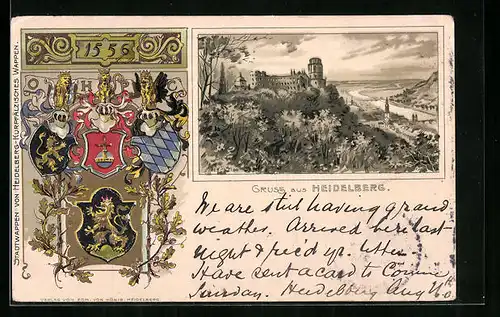 STADTWAPPEN VON HEIDELBERG-KURPFÄLZISCHES WAPPEN.
1556
GRUSS AUS HEIDELBERG.
We are still having grand
weather. Arrived here last
night & up.
Have sent a card to
Sunday. Heidelberg Aug
VERLAG VON EDM. VON KÖNIG HEIDELBERG